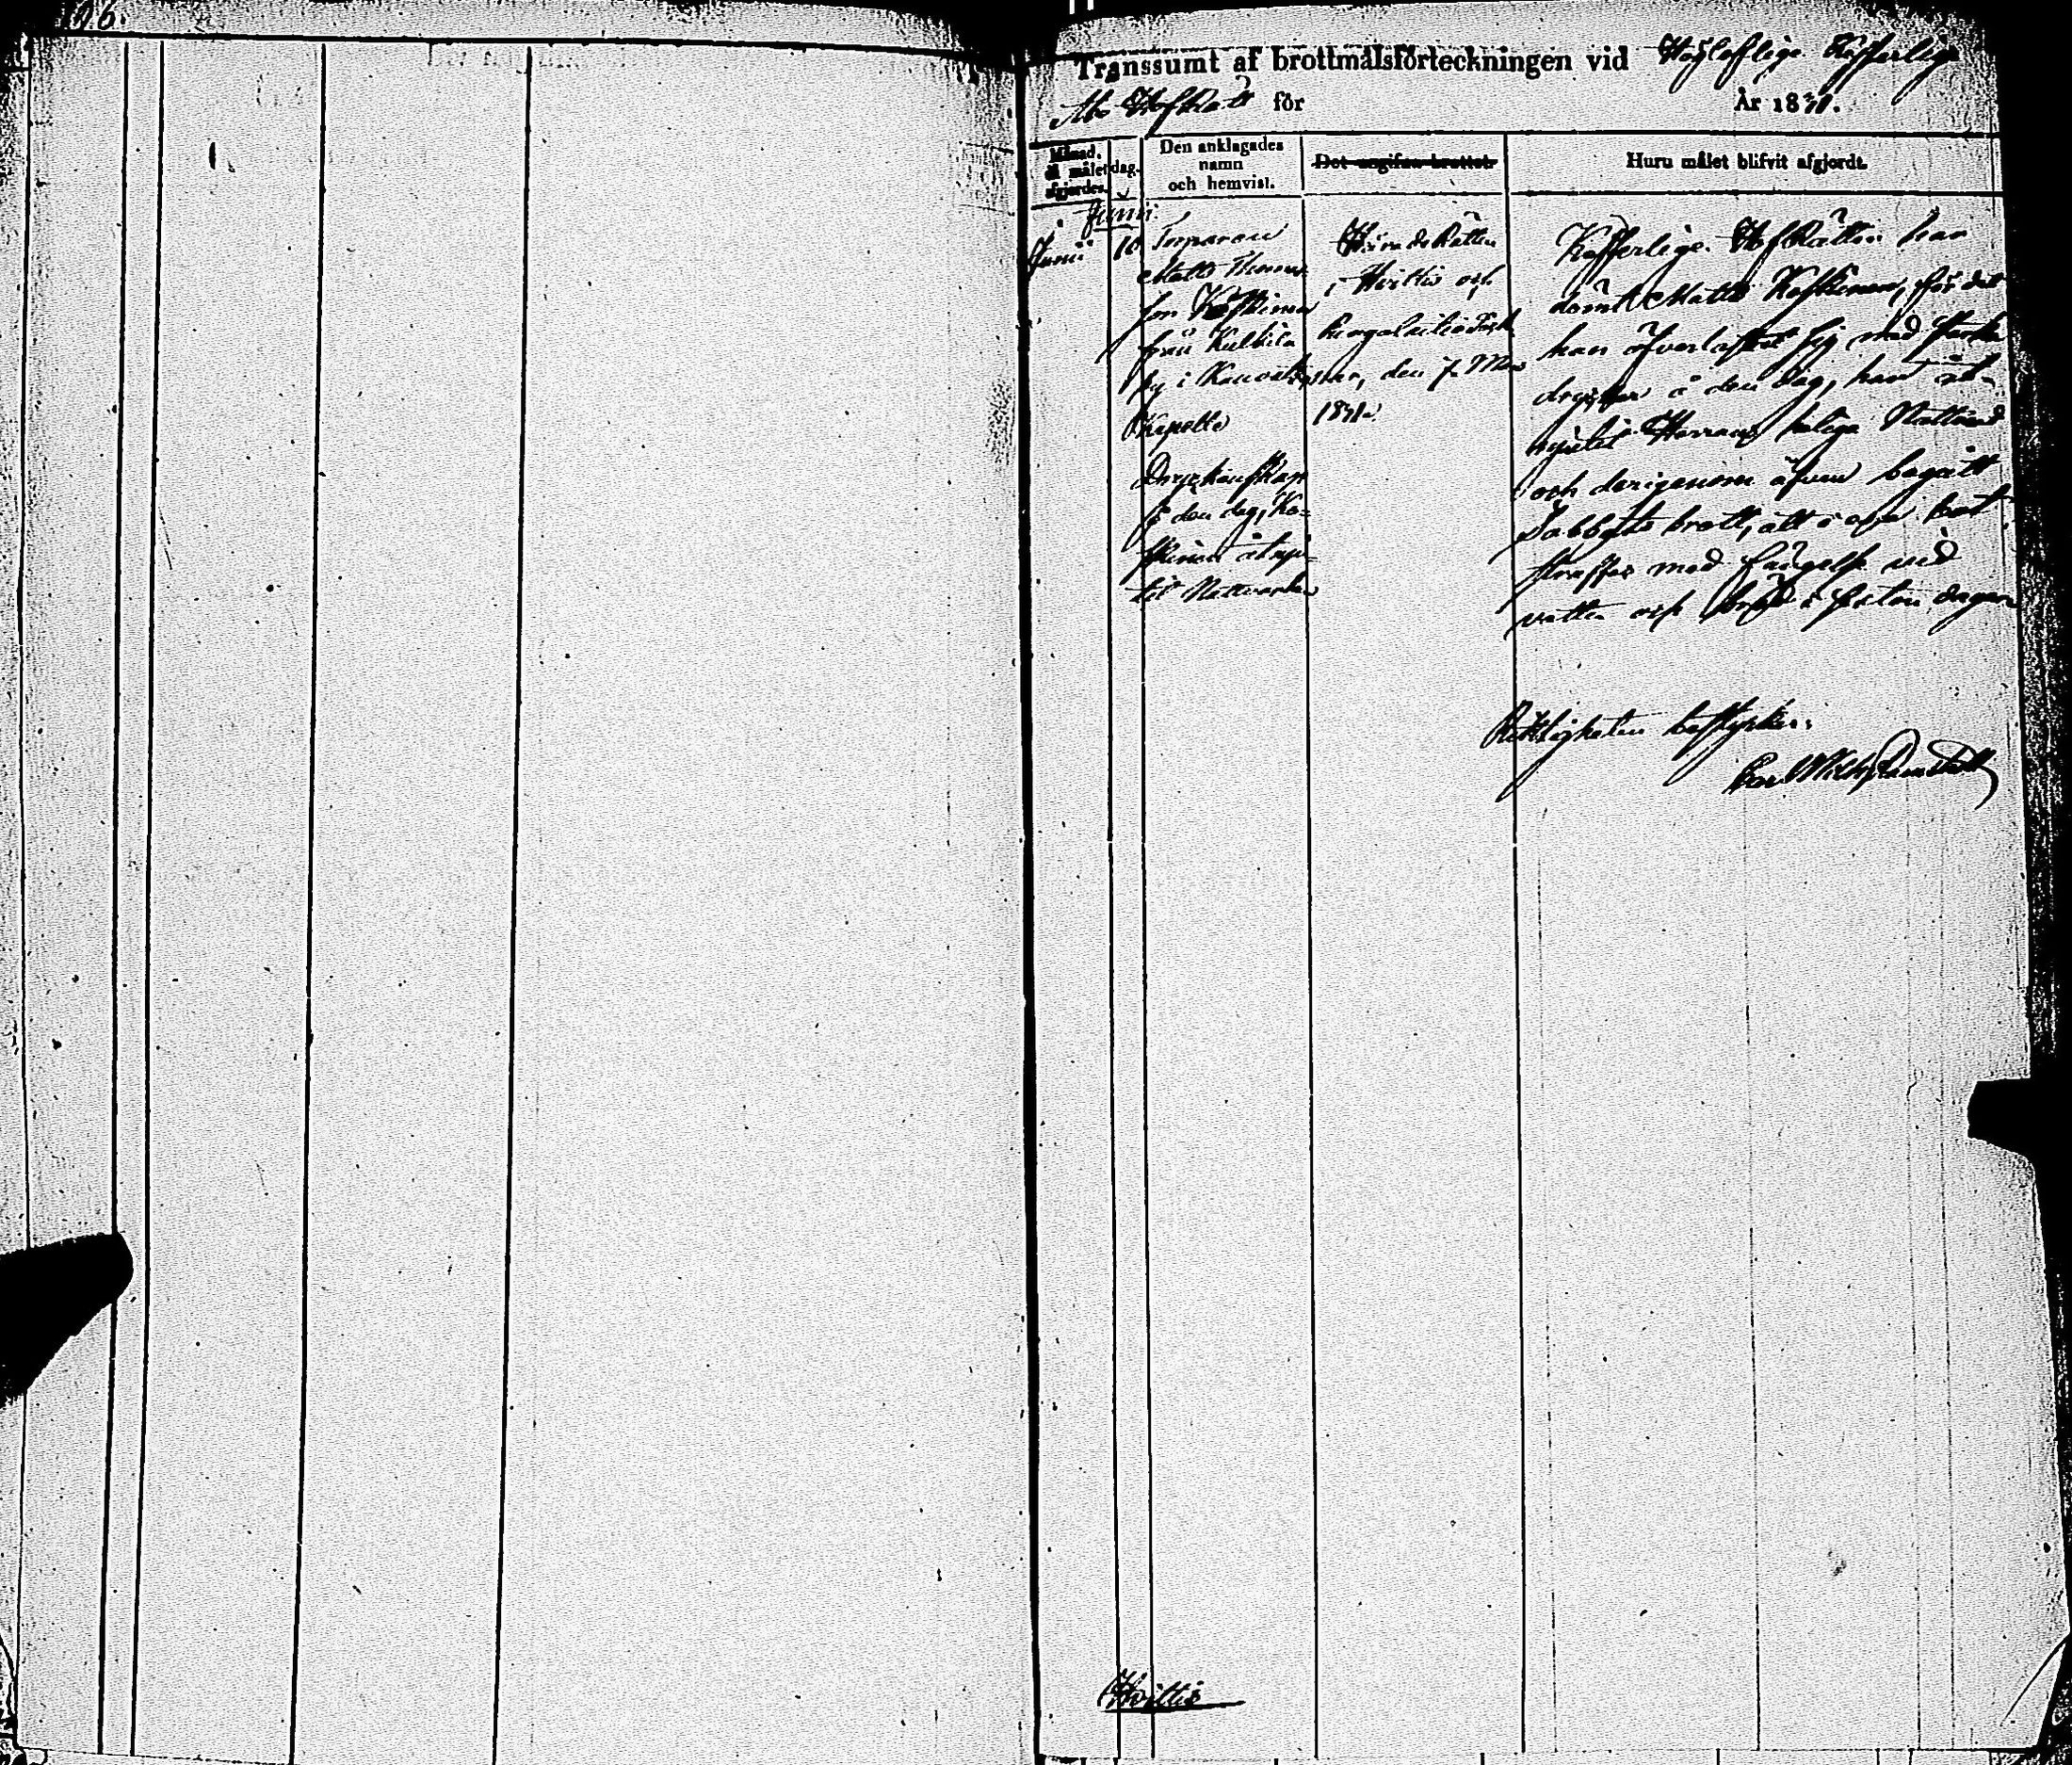 Transsumt af brottmålsförteckningen vid Höglofliga Kejserlige
Åbo HofRätt för År 1831.
Månad, då målet afgjordes.
dag.
Den anklagades namn och hemvist.
Det angifna brottet.
Huru målet blifvit afgjordt.
Junii
Junii 10
Torparen
Matts Thomas
son Koskinen
från Kulkila
by i Kauvatsa
Kapell
Dryckenskap
å den dag, Ko-
skinen åtnju-
tit Nattvarden
HäradsRätten
i Hvittis och
den 7 Mars
1831.
Kejserlige HofRätten har
dömt Matts Koskinen, för det
han öfverlastat sig med starka
drycker å den dag, han åt-
njutit Herrans heliga Nattvard
och derigenom äfven begått
Sabbats brott, att i ett bot
straffas med fängelse vid
vatten och bröd i sexton dagar
Riktigheten bestyrker:
Carl Wilh
Hvittis